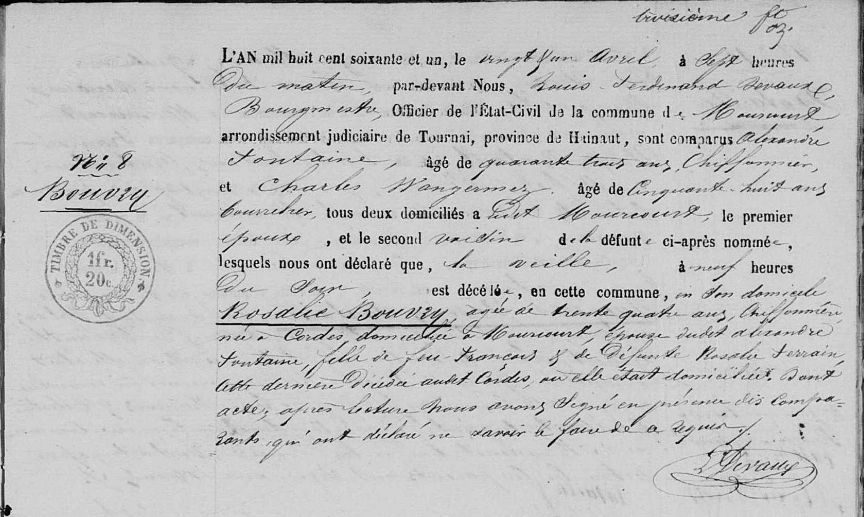 troisième fo
L'AN mil huit cent soixante et un, le vingt & un Avril, à Sept heures
Du matin, par-devant Nous, Louis-Ferdinand Devaux,
Bourgmestre, Officier de l'État-Civil de la commune de Mourcourt
arrondissement judiciaire de Tournai, province de Hainaut, sont comparus Alexandre
Fontaine, âgé de quarante trois ans, Chiffonnier,
et Charles Wangermez, âgé de Cinquante-huit ans
tous deux domiciliés a Mourcourt, le premier
époux, et le second voisin de la défunte ci-après nommée,
lesquels nous ont déclaré que, la veille, à neuf heures
Du Soir, est décédée, en cette commune, en Son domicile
Rosalie Bouvry, agée de trente quatre ans, Chiffonnière,
née à Cordes, domiciliée à Mourcourt, épouse dudit Alexandre
Fontaine, fille de feu François & de Défunte Rosalie Terrain,
cette dernière Décédée audit Cordes, où elle était domiciliée. Dont
acte, après lecture Nous avons Signé en présence des Compa-
rants, qui ont déclaré ne savoir le faire de ce requis
Devaux
No: 8
Bouvry
TIMBRE DE DIMENSION
1 fr.
20 c.